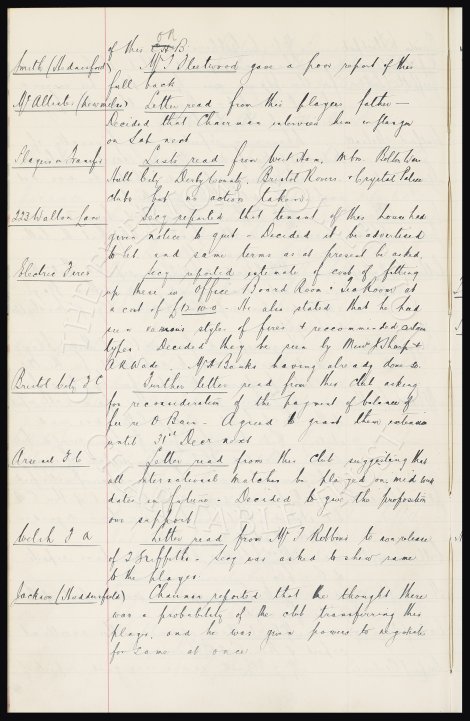 on
of this B
Smith (Hednesford) Mr J Fleetwood gave a poor report of this
full back
(Lowmoor) Letter read from this players father —
Decided that Chairman interview him in Glasgow
on Sat next
Players on Transfer Lists read from West Ham, Wton, Bolton Wan
Hull City, Derby County, Bristol Rovers & Crystal Palace
clubs but no action taken
223 Walton Lane Secy reported that tenant of this house had
given notice to quit - Decided it be advertised
to let and same terms as at present be asked.
Electric Fires Secy reported estimate of cost of fitting
up these in Office Board Room & Tea Room at
a cost of - He also stated that he had
seen various styles of fires & recommended certain
types. Decided they be seen by Messrs Sharp &
A R Wade. Mr Banks having already done so.
Bristol City F C Further letter read from this club asking
for reconsideration of the payment of balance of
fee re O Bain - Agreed to grant them extension
until 31st Decr next
Arsenal F C Letter read from this club suggesting that
all International matches be played on mid week
dates in future - Decided to give the proposition
our support
Welch F A Letter read from Mr T Robbins re non release
of T Griffiths - Secy was asked to show same
to the player
Jackson (Huddersfield) Chairman reported that he thought there
was a probability of the club transferring this
player, and he was given powers to negotiate
for same at once